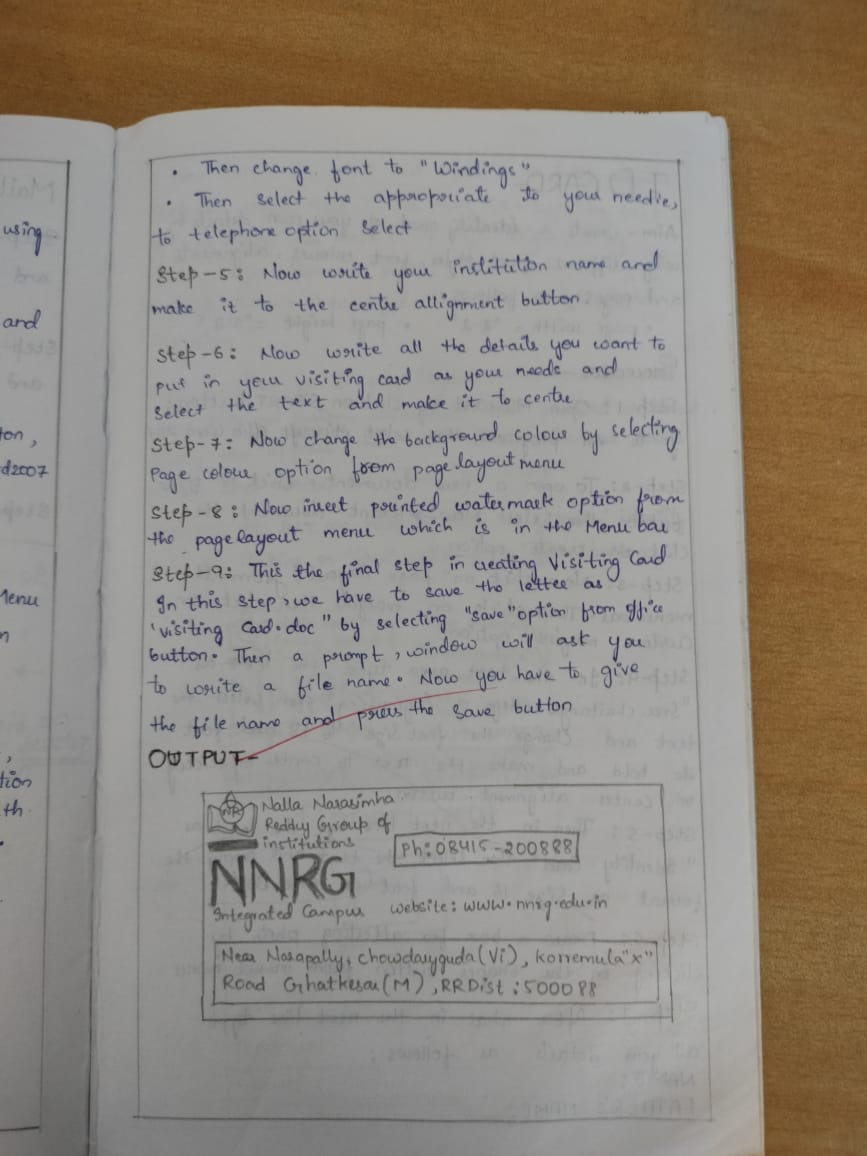 using
and
ton,
d2007
Menu
n
,
tion
th
.
• Then change font to "Windings"
• Then select the appropriate to your needie,
to telephone option select
Step-5: Now write your institution name and
make it to the centre allignment button
Step-6: Now write all the details you want to
put in your visiting card as your needs and
select the text and make it to centre
Step-7: Now change the background colour by selecting
Page colour option from page layout menu
Step-8: Now insert printed watermark option from
the page layout menu which is in the Menu bar
Step-9: This the final step in creating Visiting Card
In this step, we have to save the letter as
"visiting Card.doc" by selecting "save" option from office
button. Then a prompt, window will ask you
to write a file name. Now you have to give
the file name and press the save button
OUTPUT-
NR
Nalla Narasimha
Reddy Group of
institutions
Ph: 08415-200888
NNRG
Integrated Campus website: www.nnrg.edu.in
Near Narapally, chowdaryguda(Vi), korremula"x"
Road Ghatkesar(M), RRDist: 500088